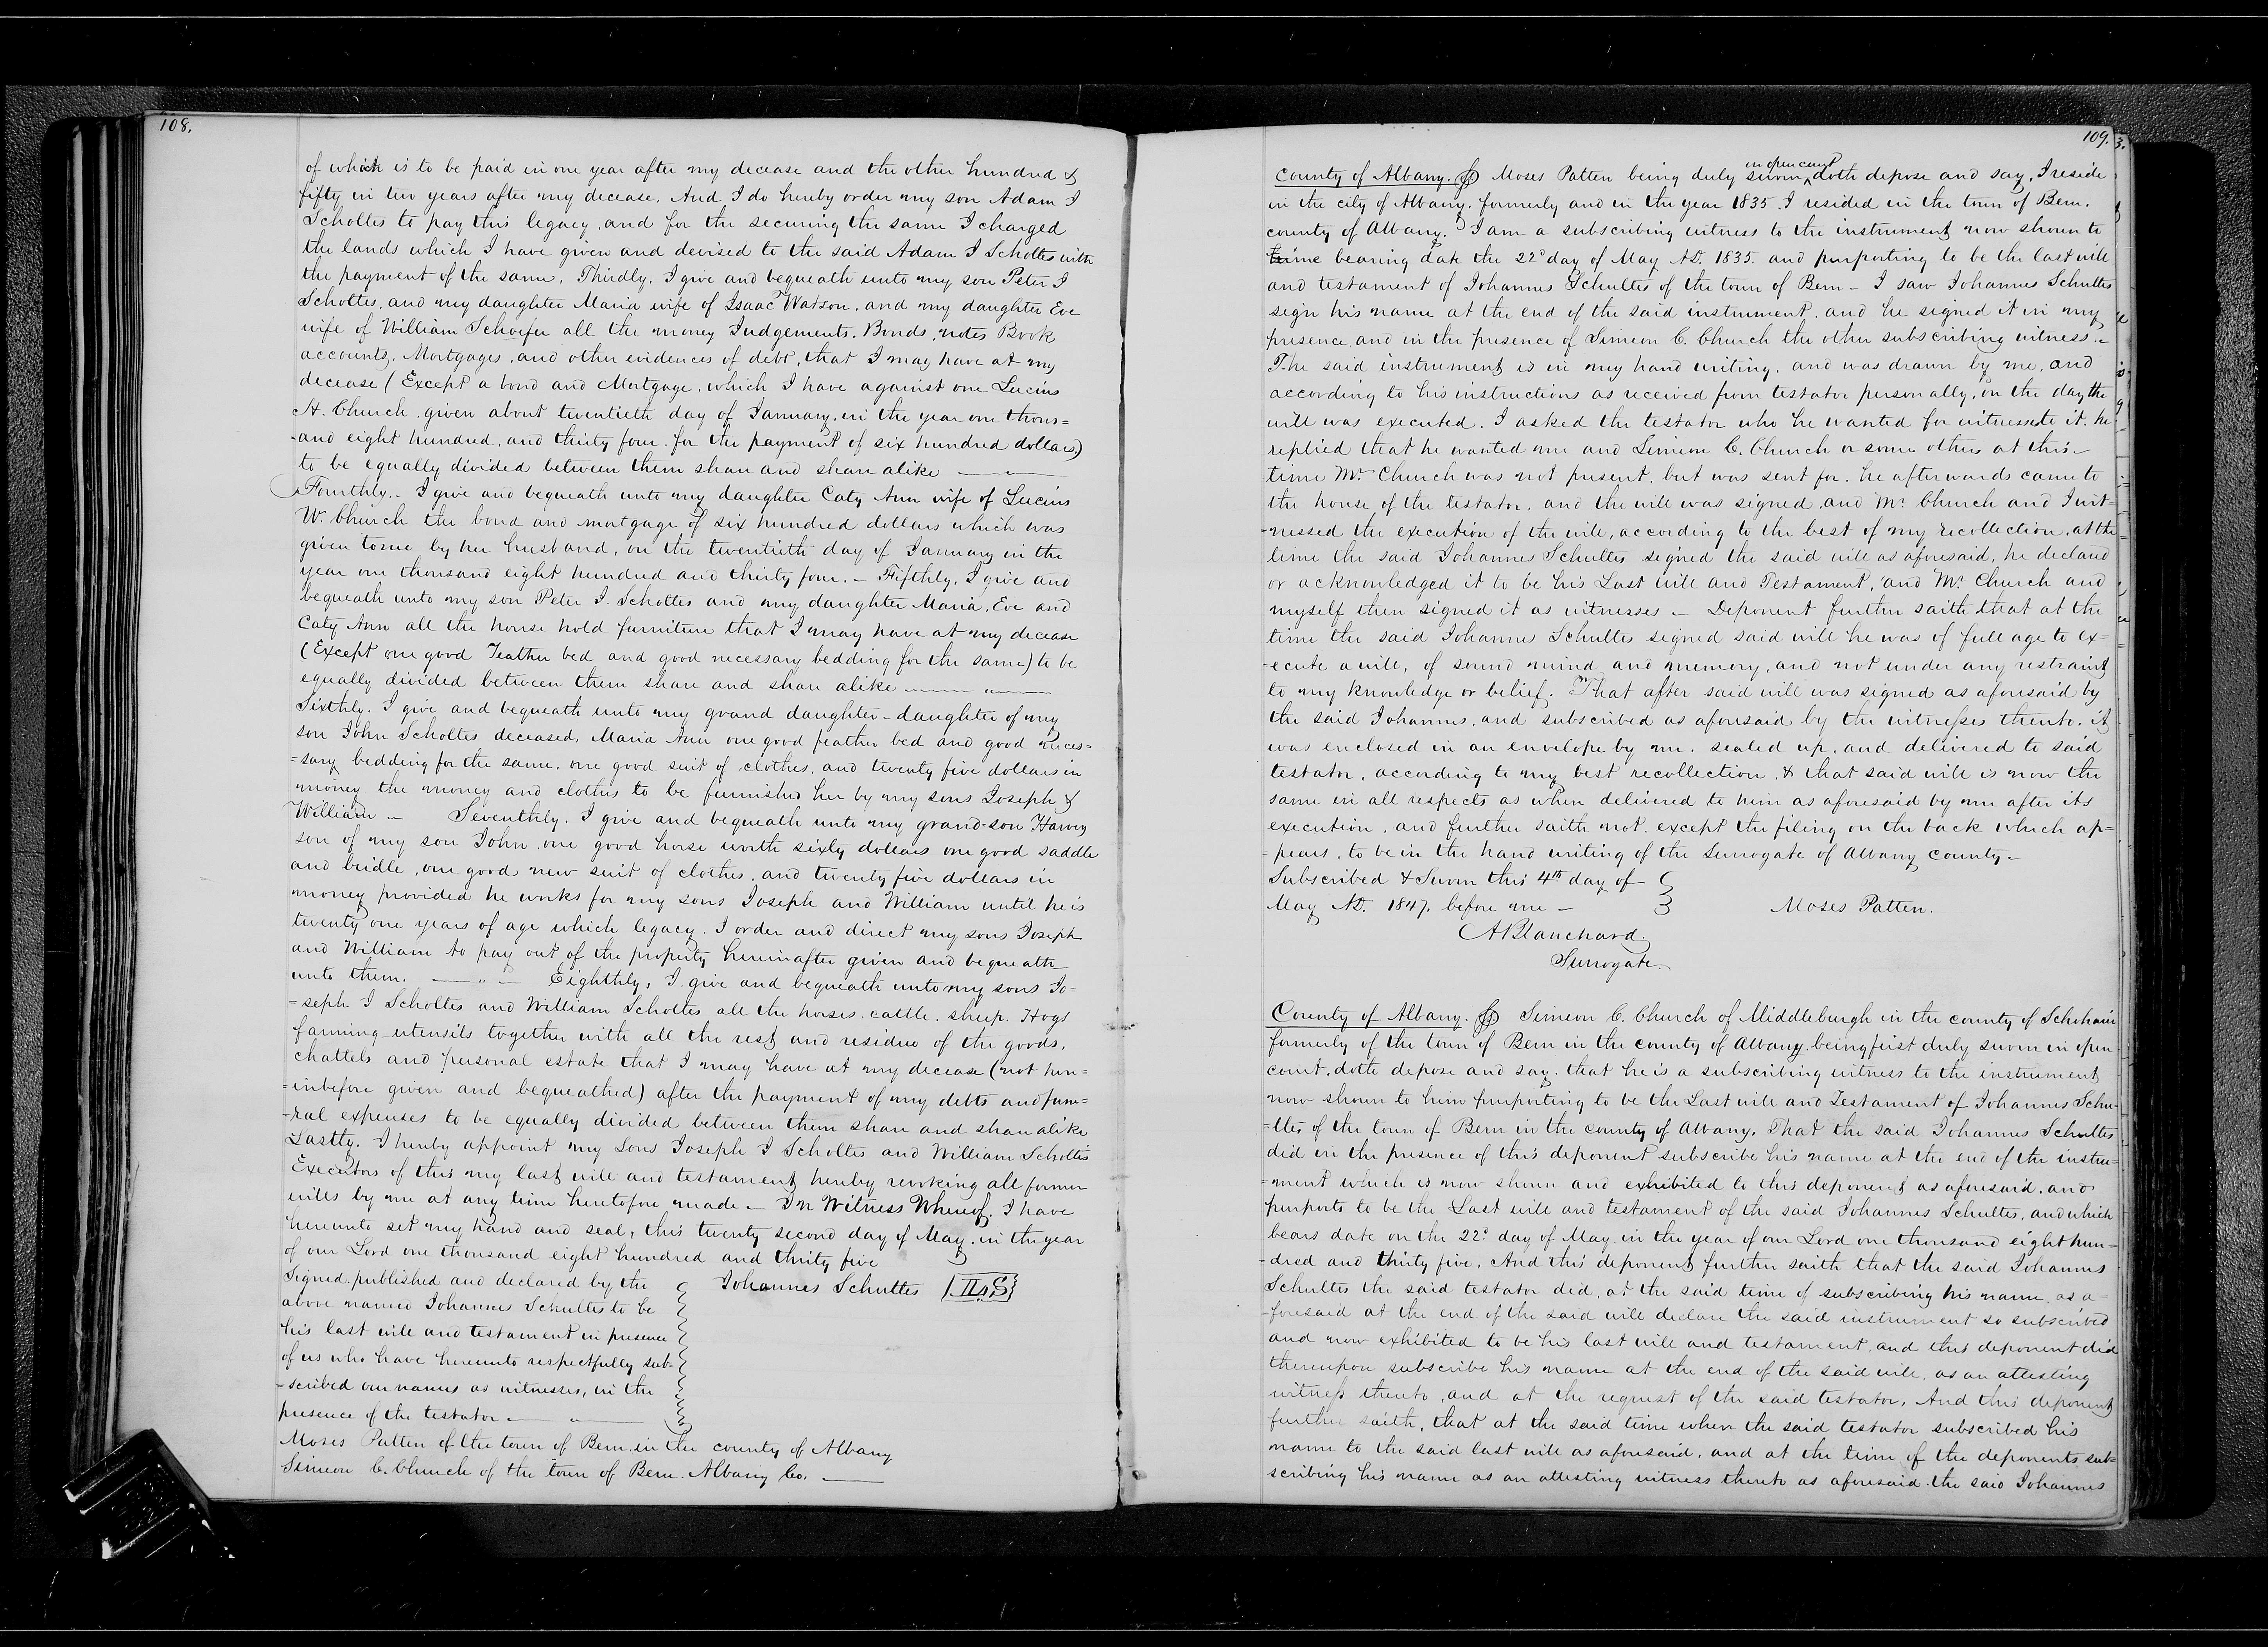 108.
of which is to be paid in one year after my decease and the other hundred &
fifty in two years after my decease. And I do hereby order my son Adam I
Scholtes to pay this legacy, and for the securing the same I charged
the lands which I have given and devised to the said Adam I Scholtes with
the payment of the same. Thirdly. I give and bequeath unto my son Peter I
Scholtes, and my daughter Maria wife of Isaac Watson, and my daughter Eve
wife of William Schoefer all the money Judgements. Bonds, notes Book
accounts, Mortgages, and other evidences of debt, that I may have at my
decease (Except a bond and Mortgage, which I have against one Lucius
H. Church, given about twentieth day of January, in the year one thous=
=and eight hundred, and thirty four. for the payment of six hundred dollars)
to be equally divided between them share and share alike
Fourthly.- I give and bequeath unto my daughter Caty Ann wife of Lucius
W. Church the bond and mortgage of six hundred dollars which was
given to me by her husband, on the twentieth day of January in the
year one thousand eight hundred and thirty four. - Fifthly, I give and
bequeath unto my son Peter I. Scholtes and my daughter Maria, Eve and
Caty Ann all the house hold furniture that I may have at my decease
(Except one good Feather bed and good necessary bedding for the same) to be
equally divided between them share and share alike
Sixthly. I give and bequeath unto my grand daughter - daughter of my
son John Scholtes deceased, Maria Ann one good feather bed and good neces=
=sary bedding for the same, one good suit of clothes, and twenty five dollars in
money the money and clothes to be furnished her by my sons Joseph &
William - Seventhly. I give and bequeath unto my grand-son Harvey
son of my son John one good horse worth sixty dollars one good saddle
and bridle, one good new suit of clothes, and twenty five dollars in
money provided he works for my sons Joseph and William until he is
twenty one years of age which legacy. I order and direct my sons Joseph
and William to pay out of the property hereinafter given and bequeath
unto them. - " - Eighthly, I give and bequeath unto my sons Jo=
=seph I Scholtes and William Scholtes all the horses. cattle. sheep. Hogs
farming utensils together with all the rest and residue of the goods,
chattels and personal estate that I may have at my decease (not her=
=inbefore given and bequeathed) after the payment of my debts and fune=
=ral expenses to be equally divided between them share and share alike
Lastly. I hereby appoint my sons Joseph I Scholtes and William Scholtes
Executors of this my last will and testament hereby revoking all former
wills by me at any time heretofore made - In Witness Whereof, I have
hereunto set my hand and seal, this twenty second day of May. in the year
of our Lord one thousand eight hundred and thirty five
Signed published and declared by the Johannes Schultes L.S.
above named Johannes Schultes to be
his last will and testament in presence
of us who have hereunto respectfully sub=
=scribed our names as witnesses, in the
presence of the testator
Moses Patten of the town of Bern in the county of Albany
Simeon C. Church of the town of Bern. Albany Co.
109.
County of Albany. ss Moses Patten being duly sworn in open court doth depose and say, I reside
in the city of Albany. formerly and in the year 1835 I resided in the town of Bern.
county of Albany. I am a subscribing witness to the instrument now shown to
me bearing date the 22d day of May AD. 1835. and purporting to be the last will
and testament of Johannes Schultes of the town of Bern - I saw Johannes Schultes
sign his name at the end of the said instrument, and he signed it in my
presence and in the presence of Simeon C. Church the other subscribing witness.
The said instrument is in my hand writing, and was drawn by me, and
according to his instructions as received from testator personally, on the day the
will was executed. I asked the testator who he wanted for witnesses to it. he
replied that he wanted me and Simeon C. Church or some others at this
time Mr. Church was not present, but was sent for. he afterwards came to
the house of the testator, and the will was signed, and Mr. Church and I wit=
=nessed the execution of the will, according to the best of my recollection, at the
time the said Johannes Schultes signed the said will as aforesaid, he declared
or acknowledged it to be his Last will and Testament, and Mr. Church and
myself then signed it as witnesses - Deponent further saith that at the
time the said Johannes Schultes signed said will he was of full age to ex=
=ecute a will, of sound mind and memory, and not under any restraint
to my knowledge or belief. That after said will was signed as aforesaid by
the said Johannes, and subscribed as aforesaid by the witnesses thereto. it
was enclosed in an envelope by me. sealed up, and delivered to said
testator, according to my best recollection, & that said will is now the
same in all respects as when delivered to him as aforesaid by me after its
execution, and further saith not. except the filing on the back which ap=
=pears, to be in the hand writing of the Surrogate of Albany county-
Subscribed & Sworn this 4th day of
May AD. 1847. before me - Moses Patten.
A Blanchard.
Surrogate.
County of Albany. ss Simeon C. Church of Middleburgh in the county of Schoharie
formerly of the town of Bern in the county of Albany. being first duly sworn in open
court, doth depose and say. that he is a subscribing witness to the instrument
now shown to him purporting to be the Last will and Testament of Johannes Schu-
=ltes of the town of Bern in the county of Albany. That the said Johannes Schultes
did in the presence of this deponent subscribe his name at the end of the instru=
=ment which is now shown and exhibited to this deponent as aforesaid, and
purports to be the Last will and testament of the said Johannes Schultes, and which
bears date on the 22d day of May in the year of our Lord one thousand eight hun=
=dred and thirty five. And this deponent further saith that the said Johannes
Schultes the said testator did, at the said time of subscribing his name, as a=
=foresaid at the end of the said will declare the said instrument so subscribed
and now exhibited to be his last will and testament, and this deponent did
thereupon subscribe his name at the end of the said will, as an attesting
witness thereto, and at the request of the said testator. And this deponent
further saith, that at the said time when the said testator subscribed his
name to the said last will as aforesaid, and at the time of the deponents sub=
scribing his name as an attesting witness thereto as aforesaid. the said Johannes